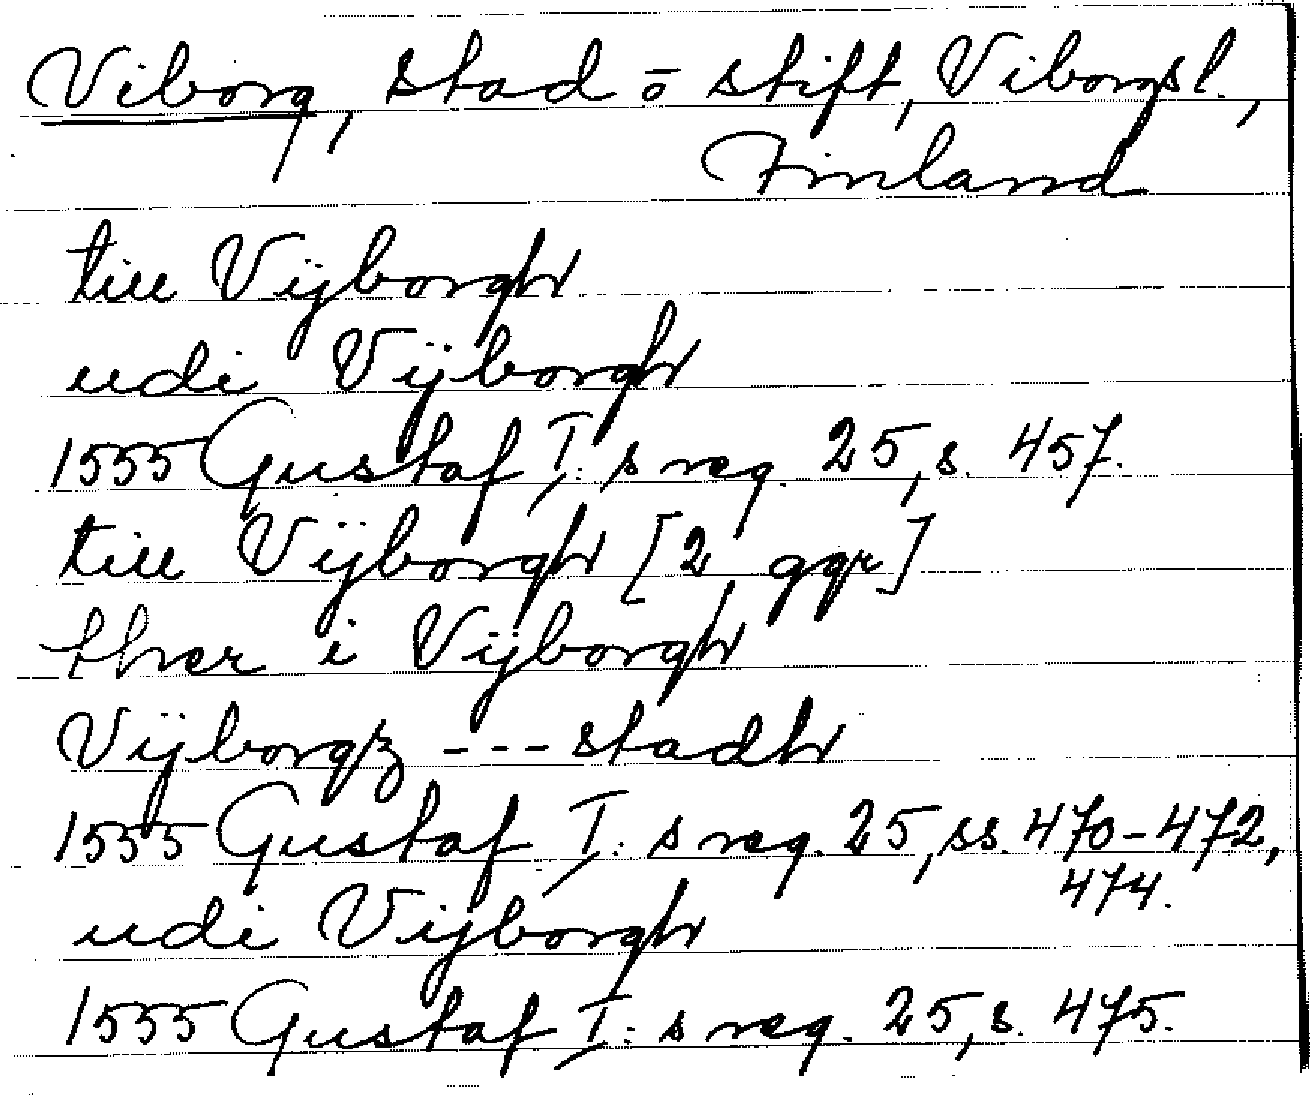 Viborg, stad o stift, Viborgsl.,
Finland
till Vijborgh
udi Vijborgh
1555 Gustaf I: s reg. 25, s. 457.
till Vijborgh [2 ggr]
thner i Vijborgh
Vijborgz --- stadh
1555 Gustaf I: s reg. 25, ss. 470-472,
474.
udi Vijborgh
1555 Gustaf I: s reg. 25, s. 475.